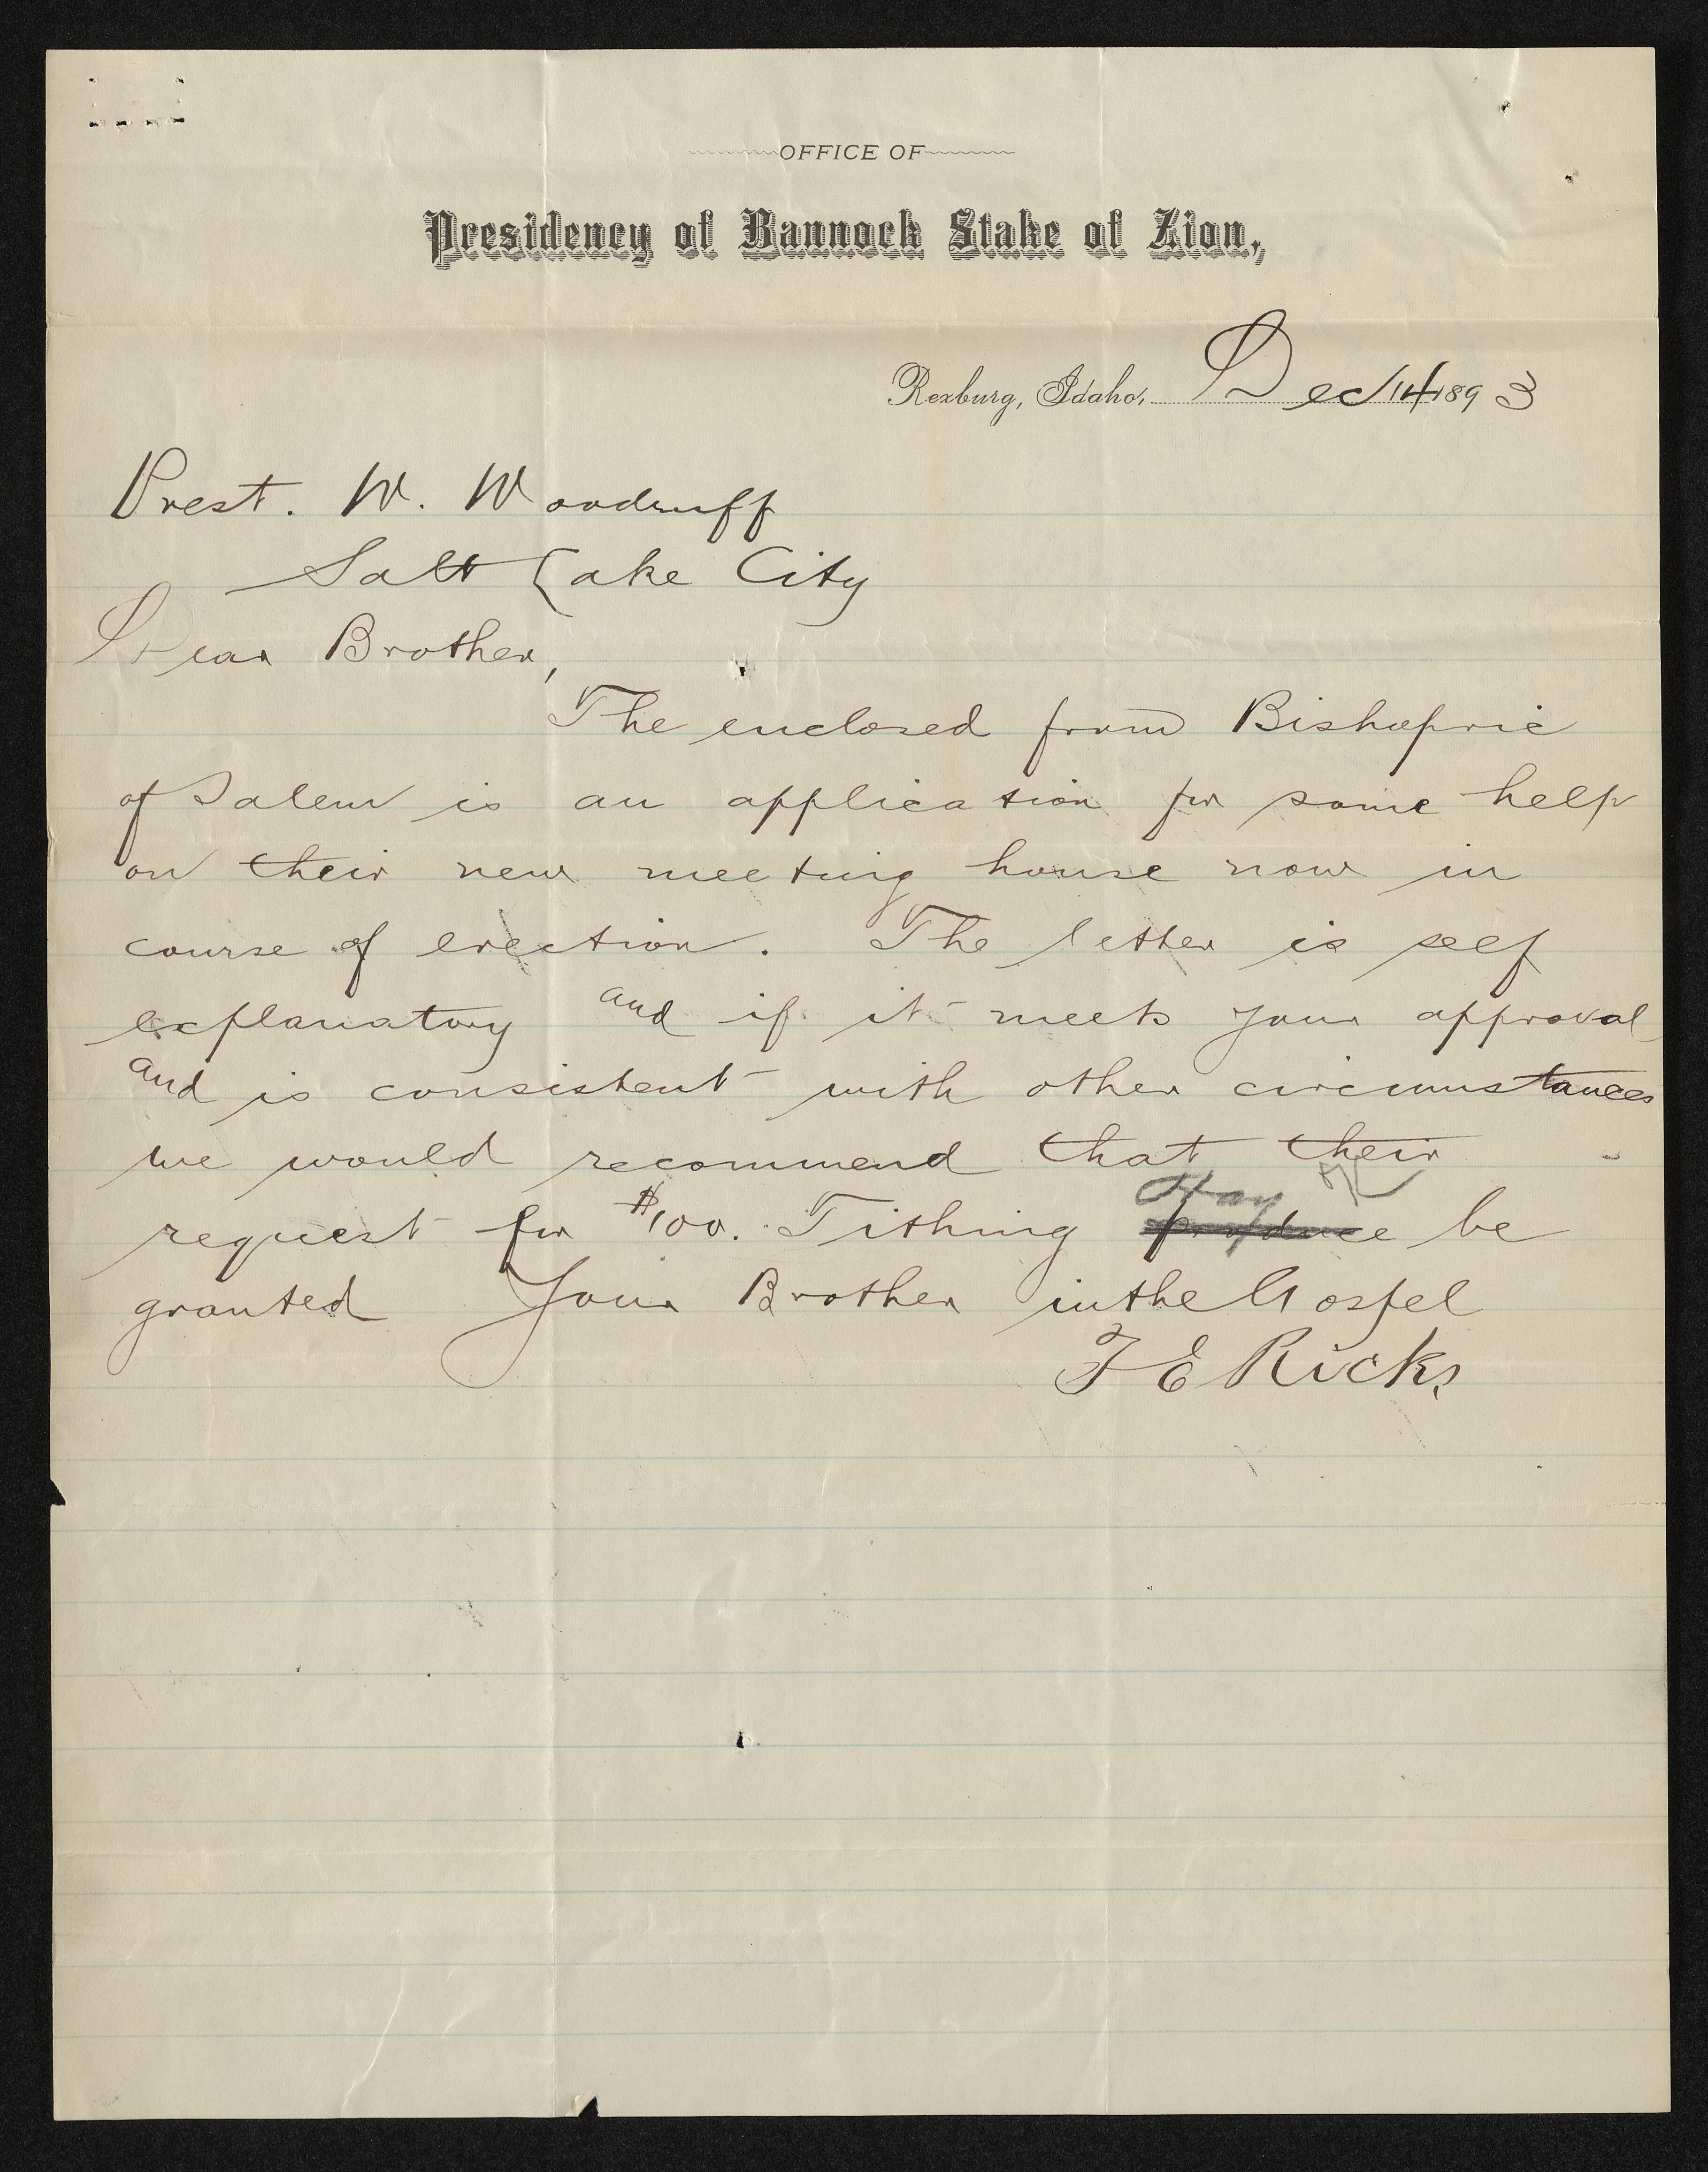 OFFICE OF
Presidency of Bannock Stake of Zion,
Rexburg, Idaho, Dec 14 1893
Prest. W. Woodruff
Salt Lake City
Dear Brother,
The enclosed from Bishopric
of Salem is an application for some help
on their new meeting house now in
course of erection. The letter is self
explanatory and if it meets your approval
and is consistent with other circumstances
we would recommend that their
Hay
request for $100. Tithing produce be
granted Your Brother in the Gospel
T E Ricks